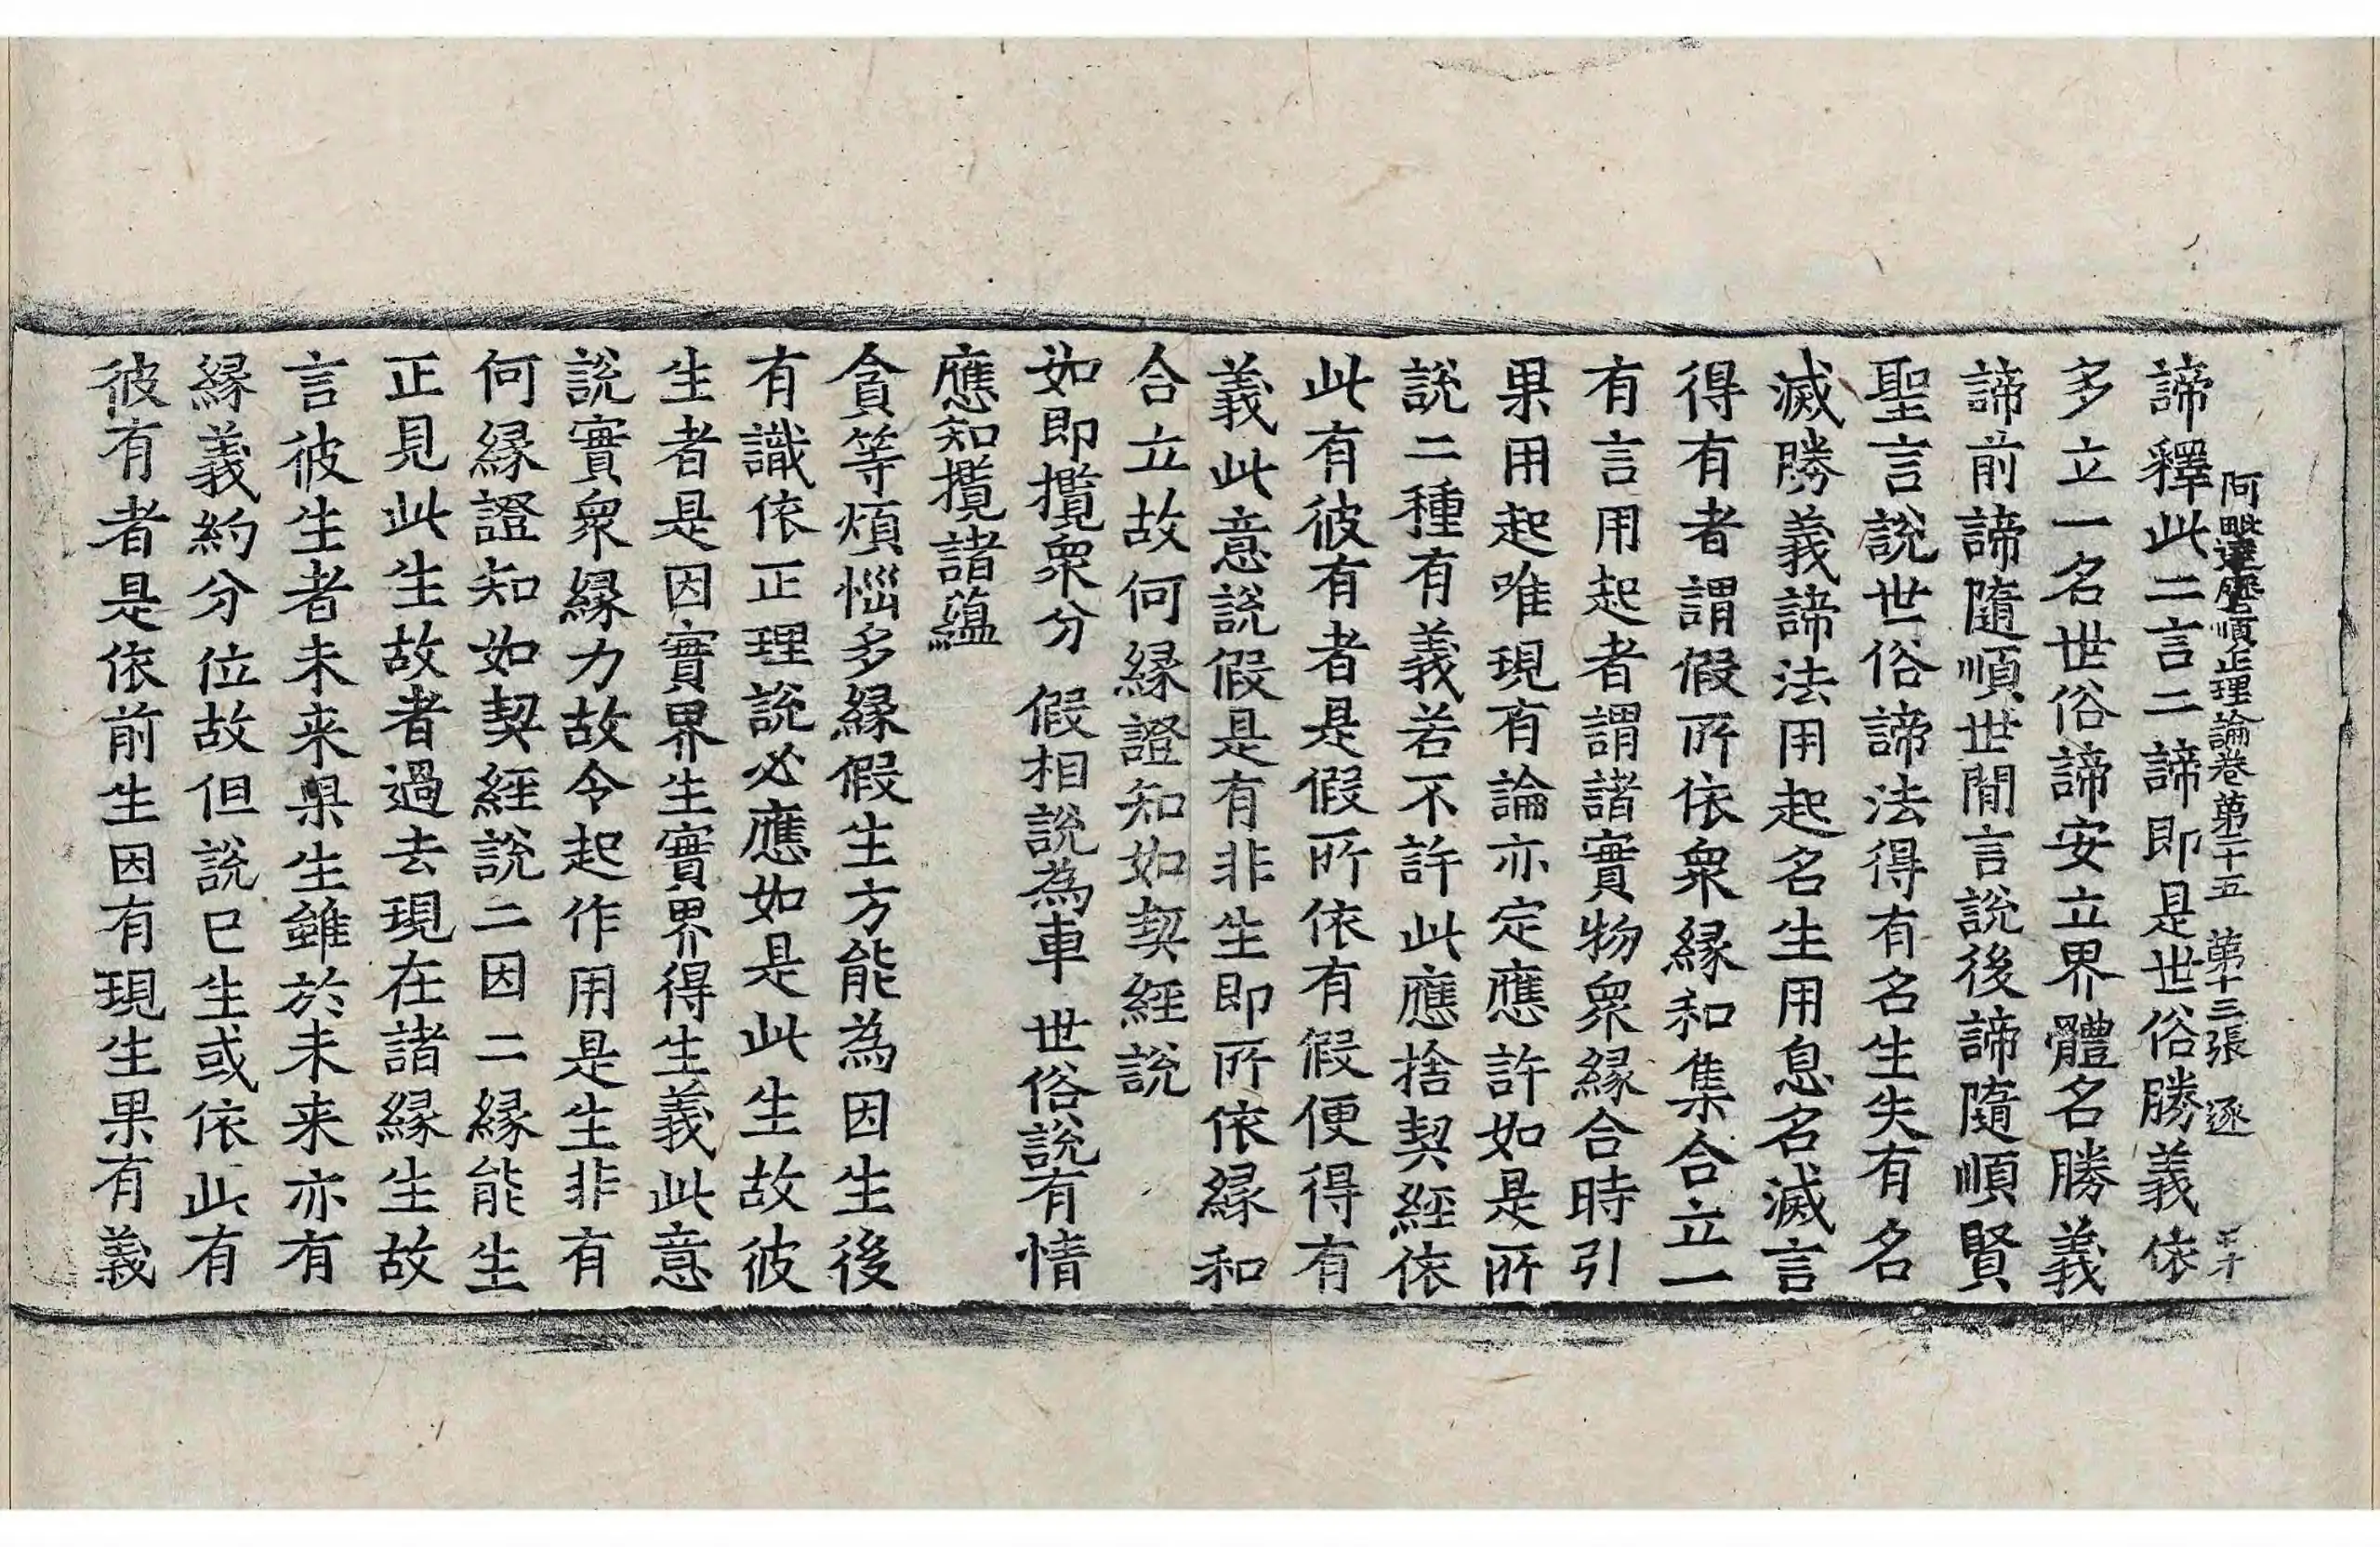 諦釋此二言二諦即是世俗勝義依
阿毗達磨順正理論卷第二十五 第十三張 逐
多立一名世俗諦安立界體名勝義
諦前諦隨順世閒言說後諦隨順賢
聖言說世俗諦法得有名生失有名
滅勝義諦法用起名生用息名滅言
得有者謂假所依衆緣和集合立一
有言用起者謂諸實物衆緣合時引
果用起唯現有論亦定應許如是所
說二種有義若不許此應捨契經依
此有彼有者是假所依有假便得有
義此意說假是有非生即所依緣和
合立故何緣證知如契經說
如即攬衆分 假相說為車 世俗說有情
應知攬諸蘊
貪等煩惱多緣假生方能為因生後
有識依正理說必應如是此生故彼
生者是因實界生實界得生義此意
說實衆緣力故令起作用是生非有
何緣證知如契經說二因二緣能生
正見此生故者過去現在諸緣生故
言彼生者未来果生雖於未来亦有
緣義約分位故但說已生或依此有
彼有者是依前生因有現生果有義